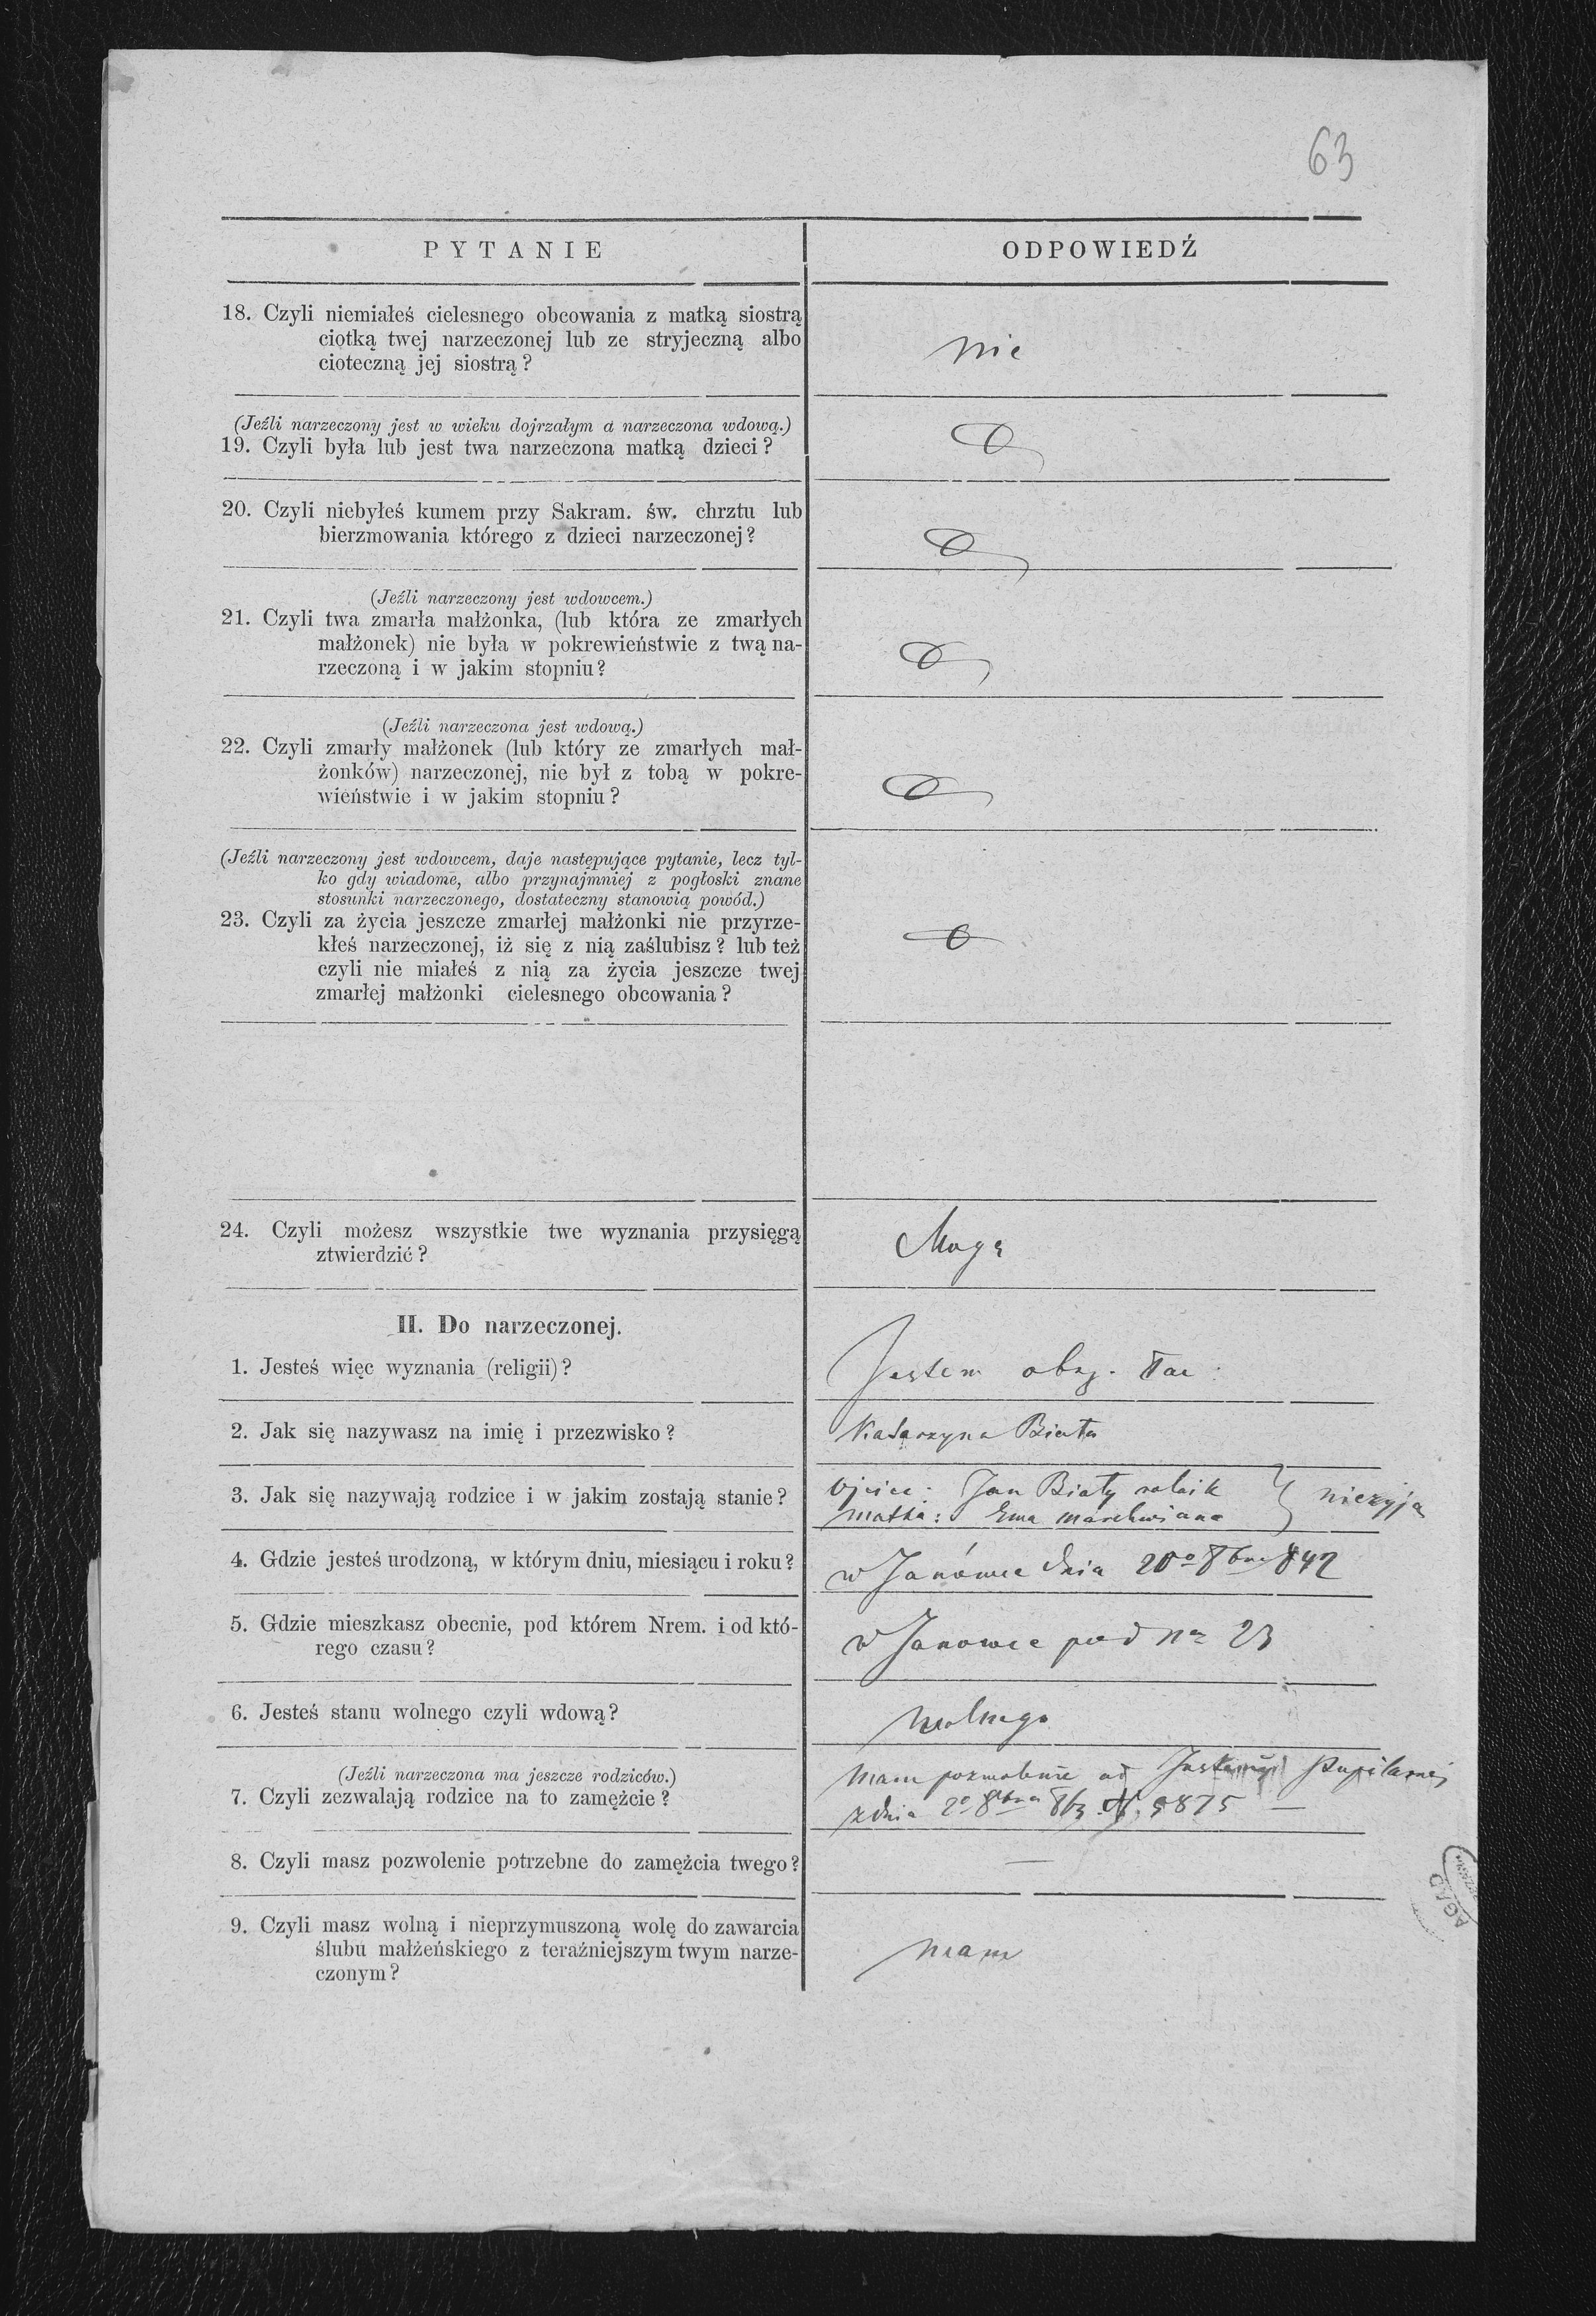 63
PYTANIE
ODPOWIEDŹ
18. Czyli niemiałeś cielesnego obcowania z matką siostrą
ciotką twej narzeczonej lub ze stryjeczną albo
cioteczną jej siostrą?
nie
(Jeźli narzeczony jest w wieku dojrzałym a narzeczona wdową.)
19. Czyli była lub jest twa narzeczona matką dzieci?
20. Czyli niebyłeś kumem przy Sakram. św. chrztu lub
bierzmowania którego z dzieci narzeczonej?
(Jeźli narzeczony jest wdowcem.)
21. Czyli twa zmarła małżonka, (lub która ze zmarłych
małżonek) nie była w pokrewieństwie z twą na-
rzeczoną i w jakim stopniu?
(Jeźli narzeczona jest wdową.)
22. Czyli zmarły małżonek (lub który ze zmarłych mał-
żonków) narzeczonej, nie był z tobą w pokre-
wieństwie i w jakim stopniu?
(Jeźli narzeczony jest wdowcem, daje następujące pytanie, lecz tyl-
ko gdy wiadome, albo przynajmniej z pogłoski znane
stosunki narzeczonego, dostateczny stanowią powód.)
23. Czyli za życia jeszcze zmarłej małżonki nie przyrze-
kłeś narzeczonej, iż się z nią zaślubisz? lub też
czyli nie miałeś z nią za życia jeszcze twej
zmarłej małżonki cielesnego obcowania?
24. Czyli możesz wszystkie twe wyznania przysięgą
ztwierdzić?
Mogę
II. Do narzeczonej.
1. Jesteś więc wyznania (religii)?
Jestem obrz. łac.
2. Jak się nazywasz na imię i przezwisko?
Katarzyna Biała
3. Jak się nazywają rodzice i w jakim zostają stanie?
Ojciec: Jan Biały rolnik } nieżyją
matka: Ewa
4. Gdzie jesteś urodzoną, w którym dniu, miesiącu i roku?
w Janówce dnia 20º 8bra 842
5. Gdzie mieszkasz obecnie, pod którem Nrem. i od któ-
rego czasu?
w Janowce pod Nr 23
6. Jesteś stanu wolnego czyli wdową?
wolnego
(Jeźli narzeczona ma jeszcze rodziców.)
7. Czyli zezwalają rodzice na to zamęźcie?
Mam pozwolenie od Pupilarnej
z dnia 2º 8bra 863 N. 9875 —
8. Czyli masz pozwolenie potrzebne do zamęźcia twego?
—
9. Czyli masz wolną i nieprzymuszoną wolę do zawarcia
ślubu małżeńskiego z teraźniejszym twym narze-
czonym?
mam
AGAD